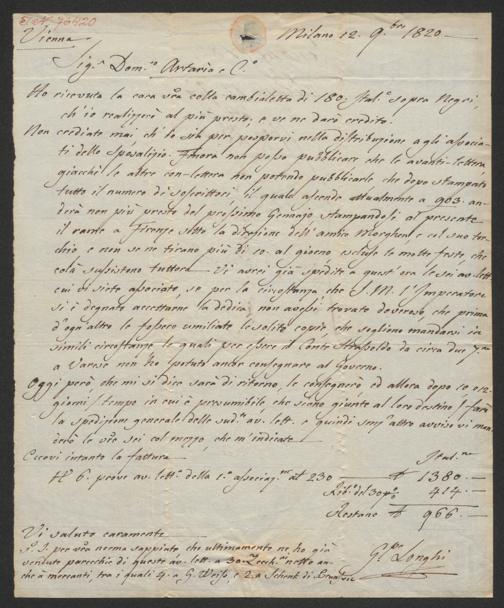 Vienna
Milano 12. 9.bre 1820
Sig.r Dom.co Artaria e C.o
Ho ricevuta la cara vra colla cambialetta di 180. Ital.e sopra Negri,
ch'io realizzerò al più presto, e ve ne darò credito.
Non crediate mai ch'io sia per posporvi nella distribuzione agli associa-
ti dello Sposalizio. Finora non posso pubblicare che le avanti-lettera,
giacchè le altre con-lettera non potendo pubblicarle che dopo stampato
tutto il numero de' soscrittori il quale ascende attualmente a 903. an-
derà non più presto del prossimo Gennajo stampandosi al presente
il rame a Firenze sotto la direzione dell'amico Morghen e col suo tor-
chio e non se ne tirano più di 10. al giorno, escluse le molte feste che
colà sussistono tuttora. Vi avrei già spedite a quest'ora le sei av. lett.
cui siete associato, se per la circostanza che S. M. l'Imperatore
si è degnato accettarne la dedica, non avessi trovato doveroso, che prima
d'ogni altro le fossero umiliate le solite copie, che sogliono mandarsi in
simili circostanze, le quali per essere il Conte Strassoldo da circa due
a Varese non ho potuto anche consegnare al Governo.
Oggi però che mi si dice sarà di ritorno, le consegnerò ed allora dopo 10 e 12
giorni (tempo in cui è presumibile che sieno giunte al loro destino) farò
la spedizione generale delle sud.e av. lett. e quindi senz'altro avviso vi man-
derò le vre sei col mezzo, che m'indicate.
Eccovi intanto la fattura
N.o 6. prove av. lett.a della 1.a associaz.ne al 230 1380.
Rib.o del 30 p% 414.
Restano 966.
Vi saluto caramente
P.S. per vra norma sappiate che ultimamente ne ho già
vendute parecchie di queste av. lett. a 30. Zecch.ni netto an-
che a mercanti, tra i quali 4. a G. Weiss, e 2. a Schenk di
G.pe Longhi